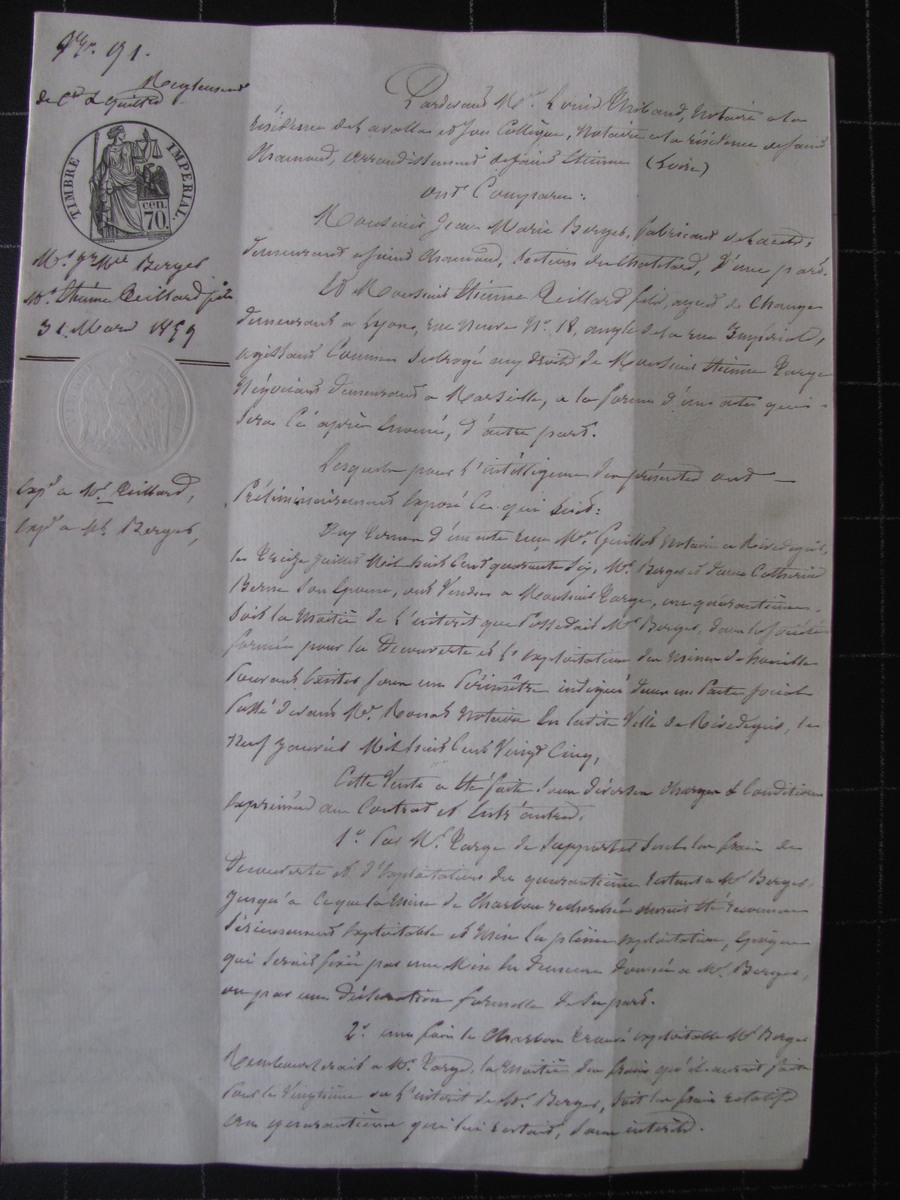 91.
Règlement
de Cte & quittce
TIMBRE IMPÉRIAL.
cen.
70.
Mr Jn Mie Berges
Mr Etienne Teillard fils
31 Mars 1859
Expn a Mr Teillard,
Expn a Mr Berges,
Pardevant Me Louis Thibaud, Notaire a la
résidence de Lavalla et son Collègue, Notaire a la résidence de Saint
Chamond, arrondissement de Saint Etienne (Loire)
ont Comparu:
Monsieur Jean Marie Berges, fabricant de lacets,
demeurant a Saint Chamond, section du Chatelard, d'une part.
Et Monsieur Etienne Teillard fils, agent de Change
demeurant a Lyon, rue Neuve No 18, angle de la rue Impérial,
agissant Comme subrogé aux droits de Monsieur Etienne Targe
Négociant demeurant a Marseille, a la forme d'un acte qui
sera Ci après énoncé, d'autre part.
Lesquels pour l'intélligence des présentes ont
Préliminairement exposé Ce qui suit:
Aux termes d'un acte reçu Me Guillot Notaire a Rivedegier,
le treize Juillet Mil huit Cent quarante six, Mr Berges et dame Catherine
Berne son épouse, ont Vendu a Monsieur Targe, un quarantième
soit la Moitié de l'intérêt que Possedait Mr Berges, dans la société
formée pour la Découverte et l'exploitation des Mines de houille
Pouvant exister sous un Périmètre indiqué dans un Pacte social
Passé devant Me Notaire en ladite Ville de Rivedegier, le
Neuf Janvier Mil huit Cent Vingt Cinq,
Cette Vente a été faite sous diverses Charges & Conditions
exprimées au Contrat et entr'autres,
1o Par Mr Targe de supporter seul les frais de
découverte et d'exploitation du quarantième restant a Mr Berges,
jusqu'à Ceque la Mine de Charbon recherchée aurait été reconnue
sérieusement exploitable et Mise en pleine exploitation, époque
qui serait fixée par une Mise en demeure donnée a Mr Berges,
ou par une déclaration formelle de sa part.
2o une fois le Charbon trouvé exploitable Mr Berges
Rembourserait a Mr Targe, la Moitié des frais qu'il aurait faits
Pour le Vingtième ou l'intérêt de Mr Berges, soit les frais relatifs
au quarantième qui lui restait, sans intérêts.